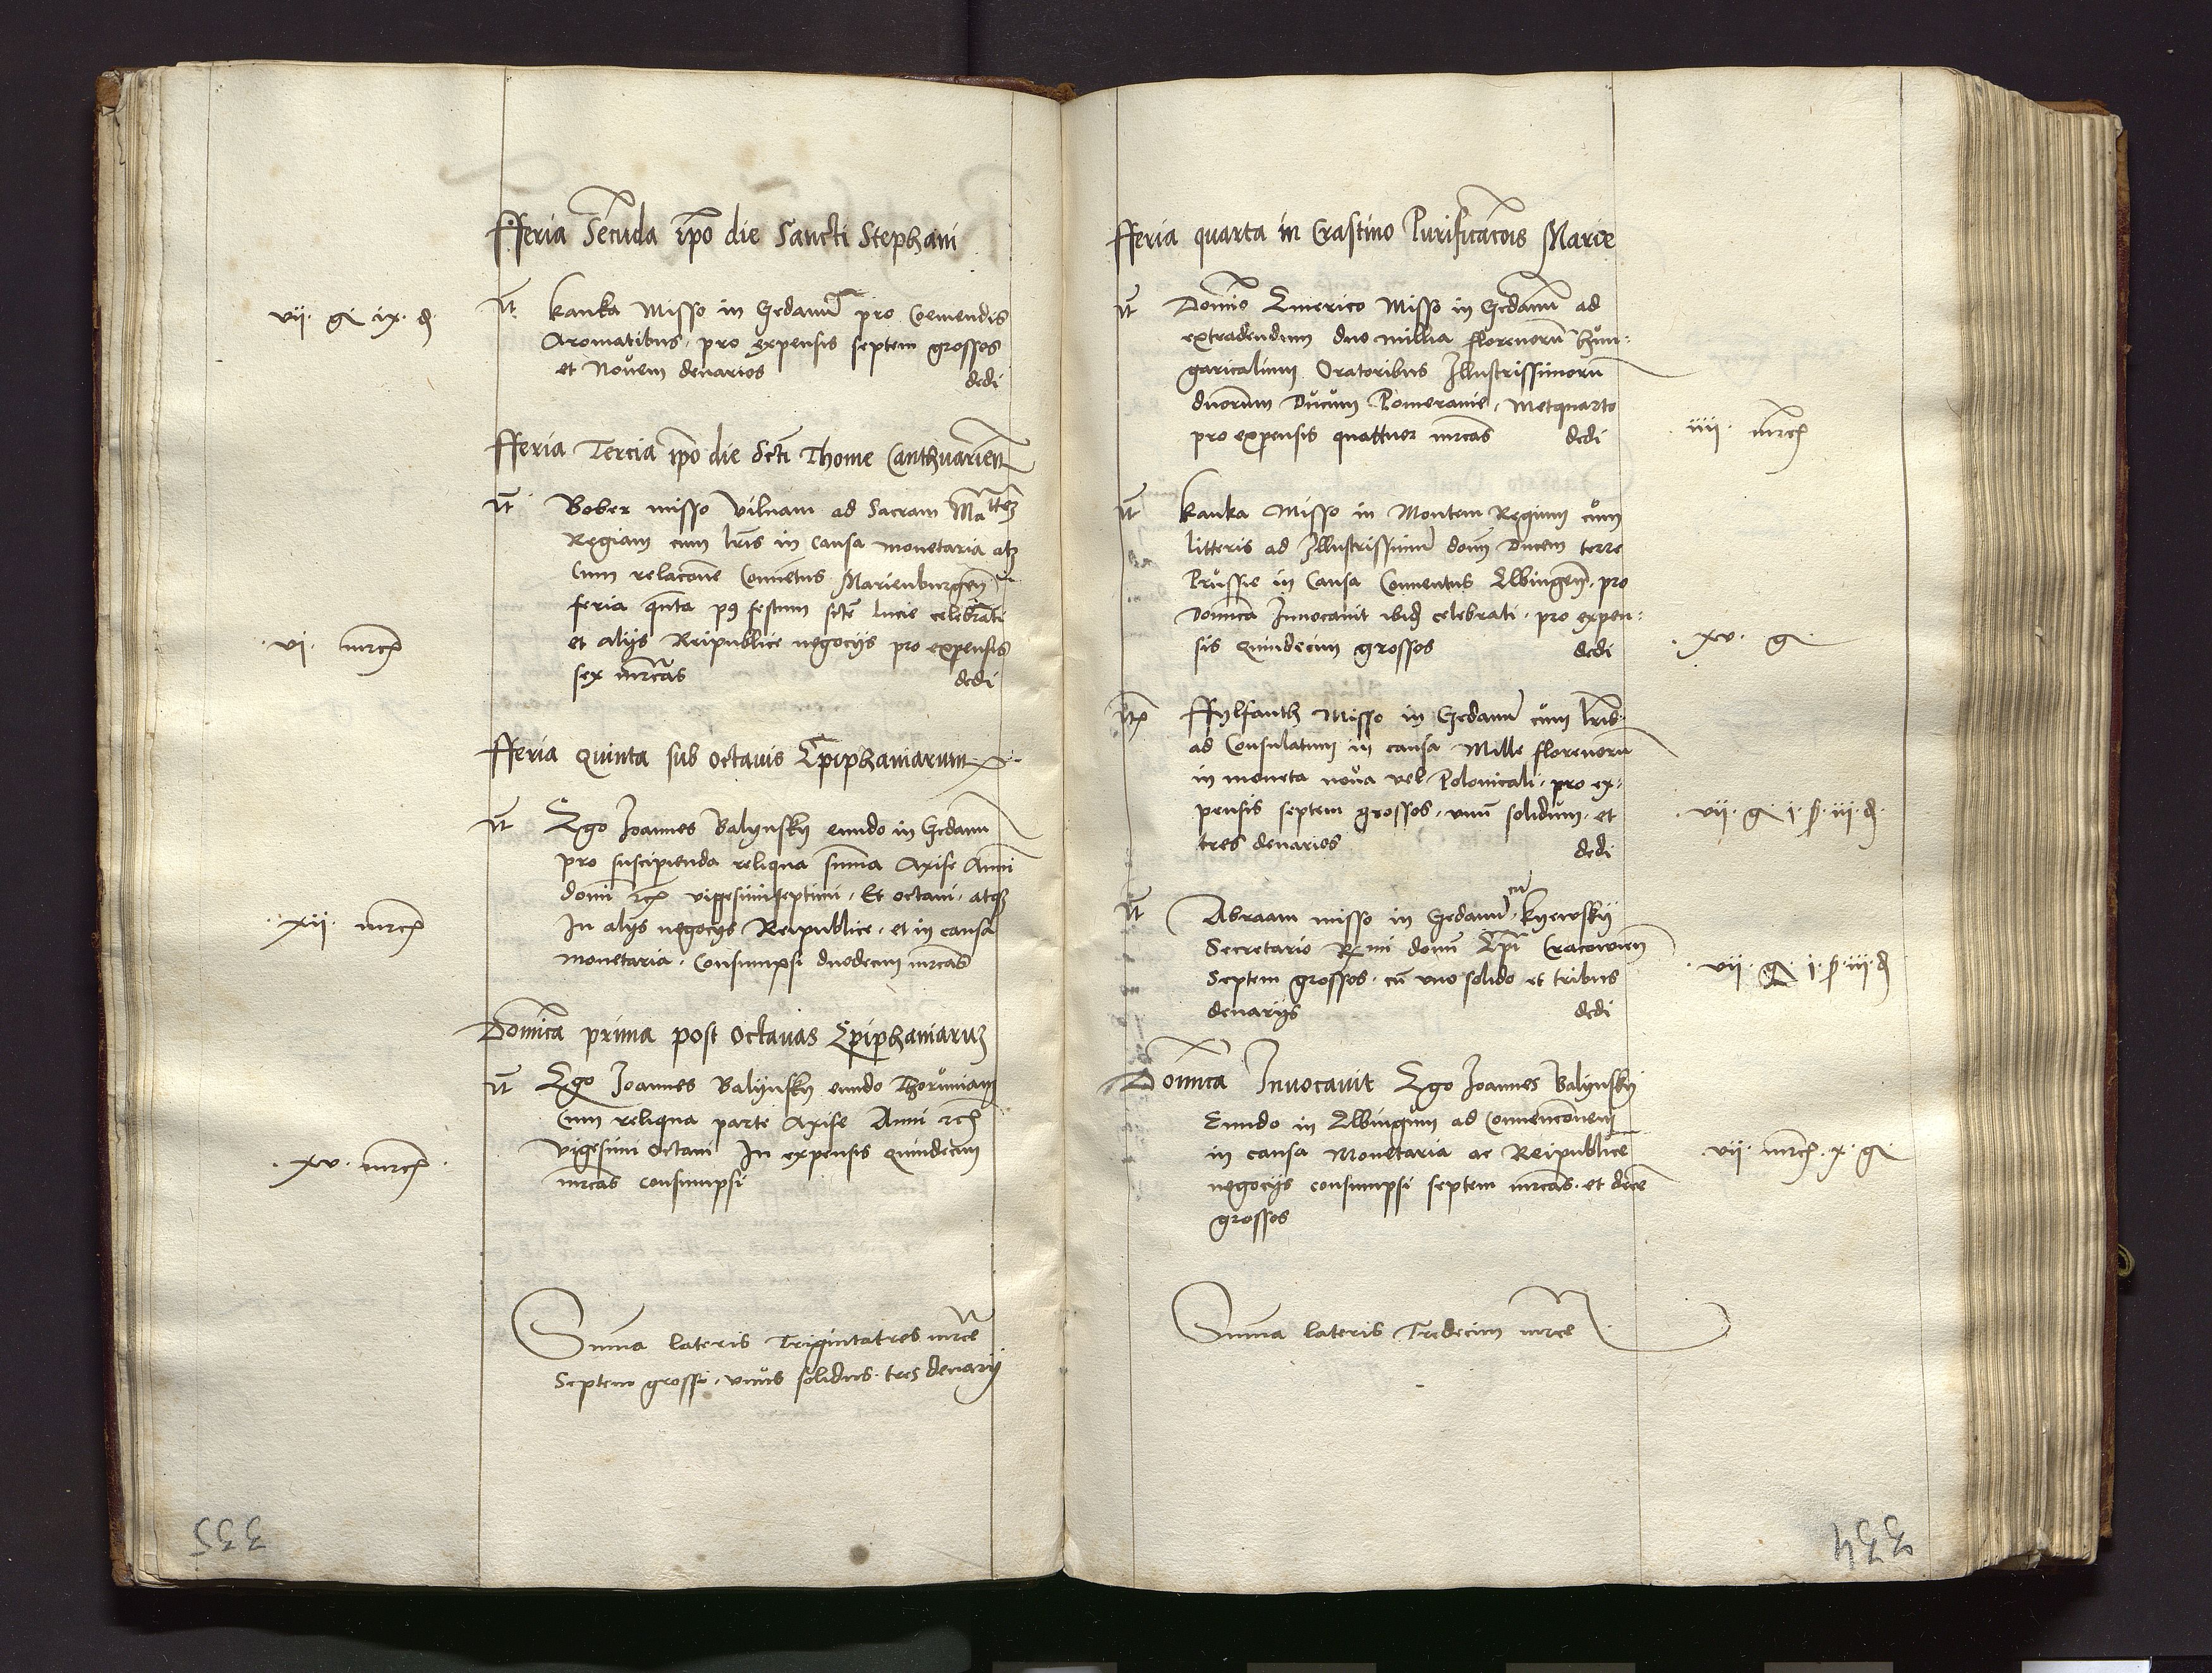 fferia Secunda ipo die Sancti Stephani
vii · g ix · d
It kanka Misso in Gedanu pro Coemendis
Aromatibus · pro expensis septem grossos
et Novem denarios dedi
fferia Tercia ipo die Scti Thome Canthuarien
It Bober misso Vilnam ad Sacram Ma ttem
Regiam cum lris in Causa Monetaria atq
Cum relacone Conuetus Marienburgen
feria qnta p9 festum scte Lucie celebrati
et alijs Reipublice negocijs pro expensis
· vi · mrc
sex mrcas dedi
fferia Quinta sub octauis Epiphaniarum
It Ego Joannes Balynsky eundo in Gedanu
pro suscipienda reliqua suma Axise Anni
domi rc vigesimiseptimi · Et octaui · atq
· xii · mrc
In alijs negocijs Reipublice · et in causa
monetaria · Consumpsi duodecim mrcas
Domica prima post Octauas Epiphaniaru
It Ego Joannes Balynsky eundo Thoruniam
Cum reliqua parte Axise Anni rc
Vigesimi Octaui In expensis Quindecim
· xv · mrc ·
mrcas consumpsi
Suma lateris Trigintatres mrce
Septem grossi · vnus solidus · tres denarij
335
fferia quarta in Crastino Purificacois Marie
It Domio Emerico Misso in Gedanu ad
extradendum duo millia florenoru hun:
garicalium Oratoribus Illustrissimoru
duorum Ducum Pomeranie · metquarto
pro expensis quattuor mrcas dedi
· iiii · mrc
It kanka Misso in Montem Regium cum
litteris ad Illustrissimu dom Ducem terre
Prussie in Causa Conuentus Elbingen · pro
Domica Inuocauit ibid celebrati · pro expen:
sis Quindecim grossos dedi
· xv · g
It ffylfanth Misso in Gedanu cum lris
ad Consulatum in causa Mille florenoru
in moneta noua vel Polonicali · pro ex:
pensis septem grossos · vnu solidum · et
· vii · g · i · s · iii · d ·
tres denarios dedi
It Abraam misso in Gedanu cu kyewsky
Secretario R mi domi Epi Cracouien
Septem grossos · cu vno solido et tribus
· vii · g · i · s · iii · d
denarijs dedi
Domica Inuocauit Ego Joannes Balynsky
Eundo in Elbingum ad Conuenconem
in causa Monetaria ac Reipublice
· vii · mrc · x · g
negocijs consumpsi septem mrcas · et dece
grossos
Suma lateris Tredecim mrce
334